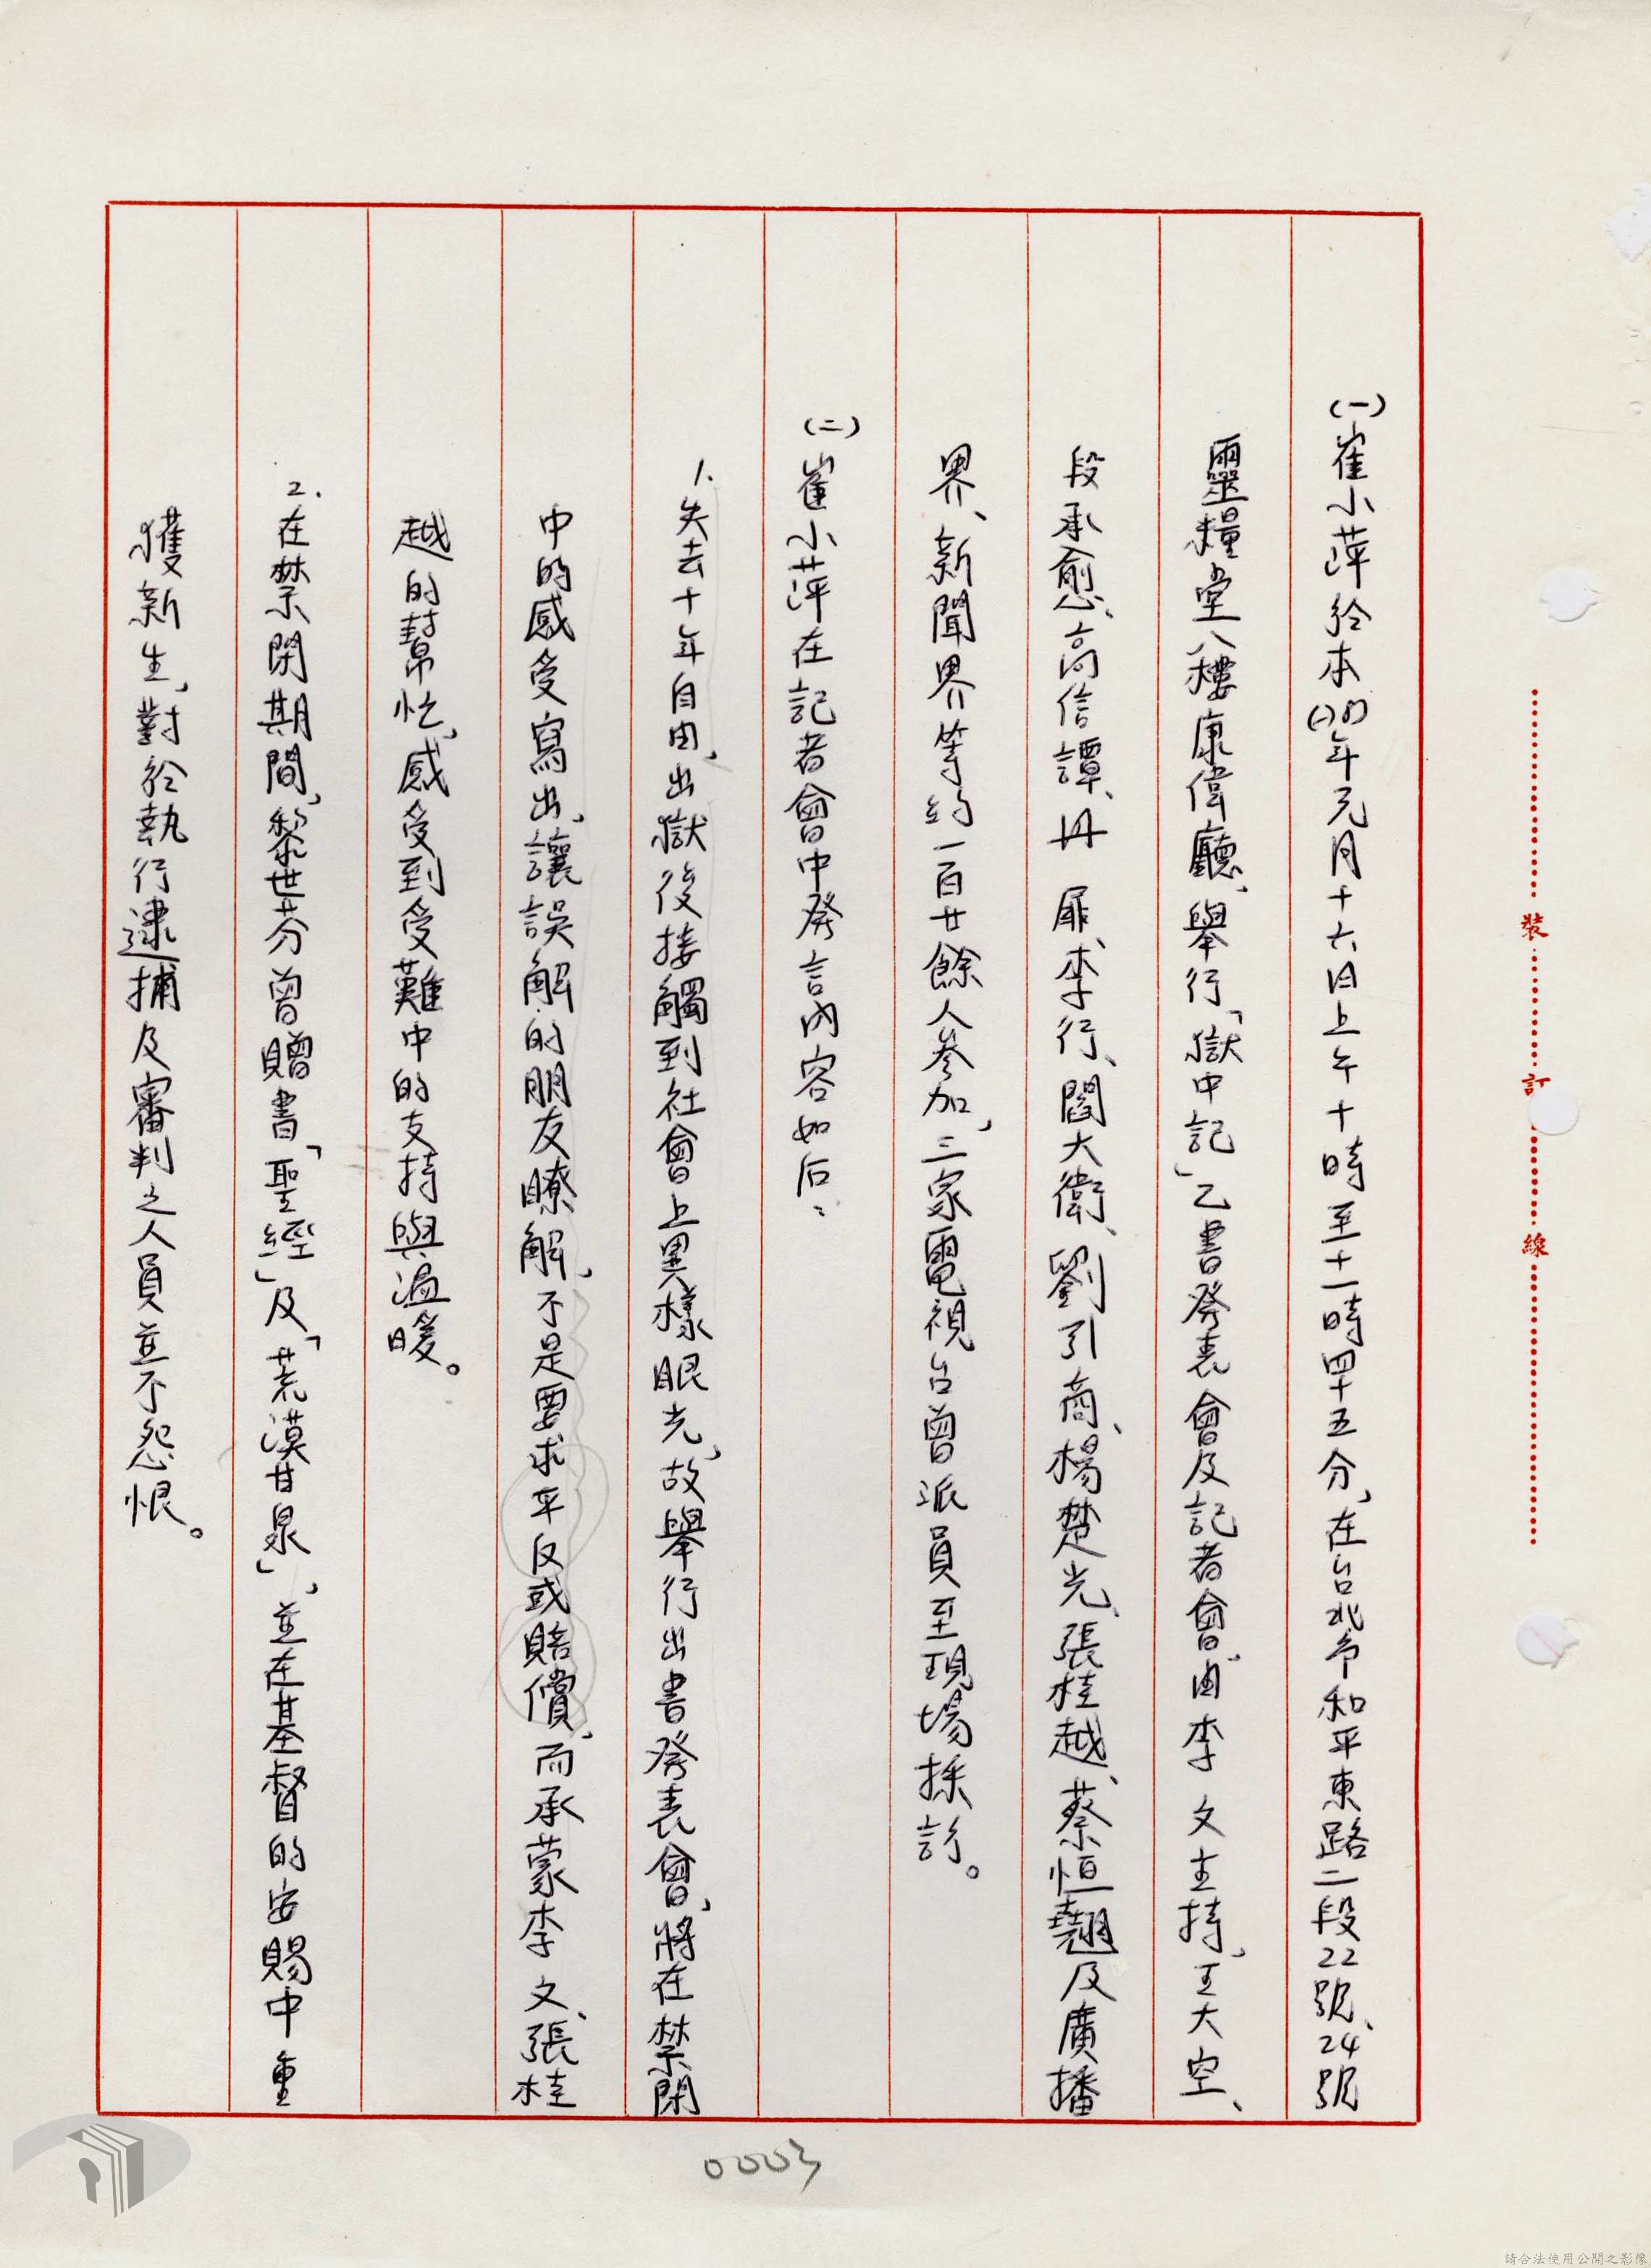 (一)崔小萍於本(78)年元月十六日上午十時至十一時四十五分、在台北市和平東路二段22號、24號
靈糧堂八樓康偉廳、舉行「獄中記」乙書發表會及記者會、由李 文主持、王大空、
段承愈、高信譚、丹 扉、李行、閻大衛、劉引商、楊楚光、張桂越、蔡恒翹及廣播
界、新聞界等約一百廿餘人參加、三家電視台曾派員至現場採訪。
(二)崔小萍在記者會中發言內容如后：
1.失去十年自由、出獄後接觸到社會上異樣眼光、故舉行出書發表會、將在禁閉
中的感受寫出、讓誤解的朋友瞭解、不是要求平反或賠償、而承蒙李 文、張桂
越的幫忙、感受到受難中的支持與溫暖。
2.在禁閉期間、黎世芬曾贈書「聖經」及「荒漠甘泉」、並在基督的安賜中重
獲新生、對於執行逮捕及審判之人員並不怨恨。
裝
訂
線
0003
請合法使用公開之影像